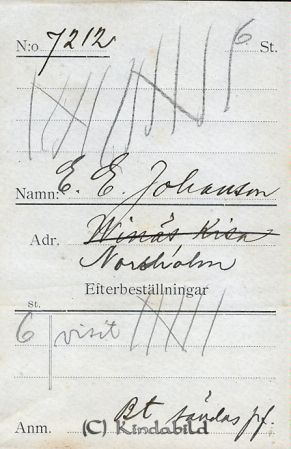 N:o 7212 6 St.
Namn: E. E. Johanson
Adr. Winäs Kisa
Norsholm
Efterbeställningar
st.
6 visit
Bt sändas pf.
Anm. (C) Kindabild